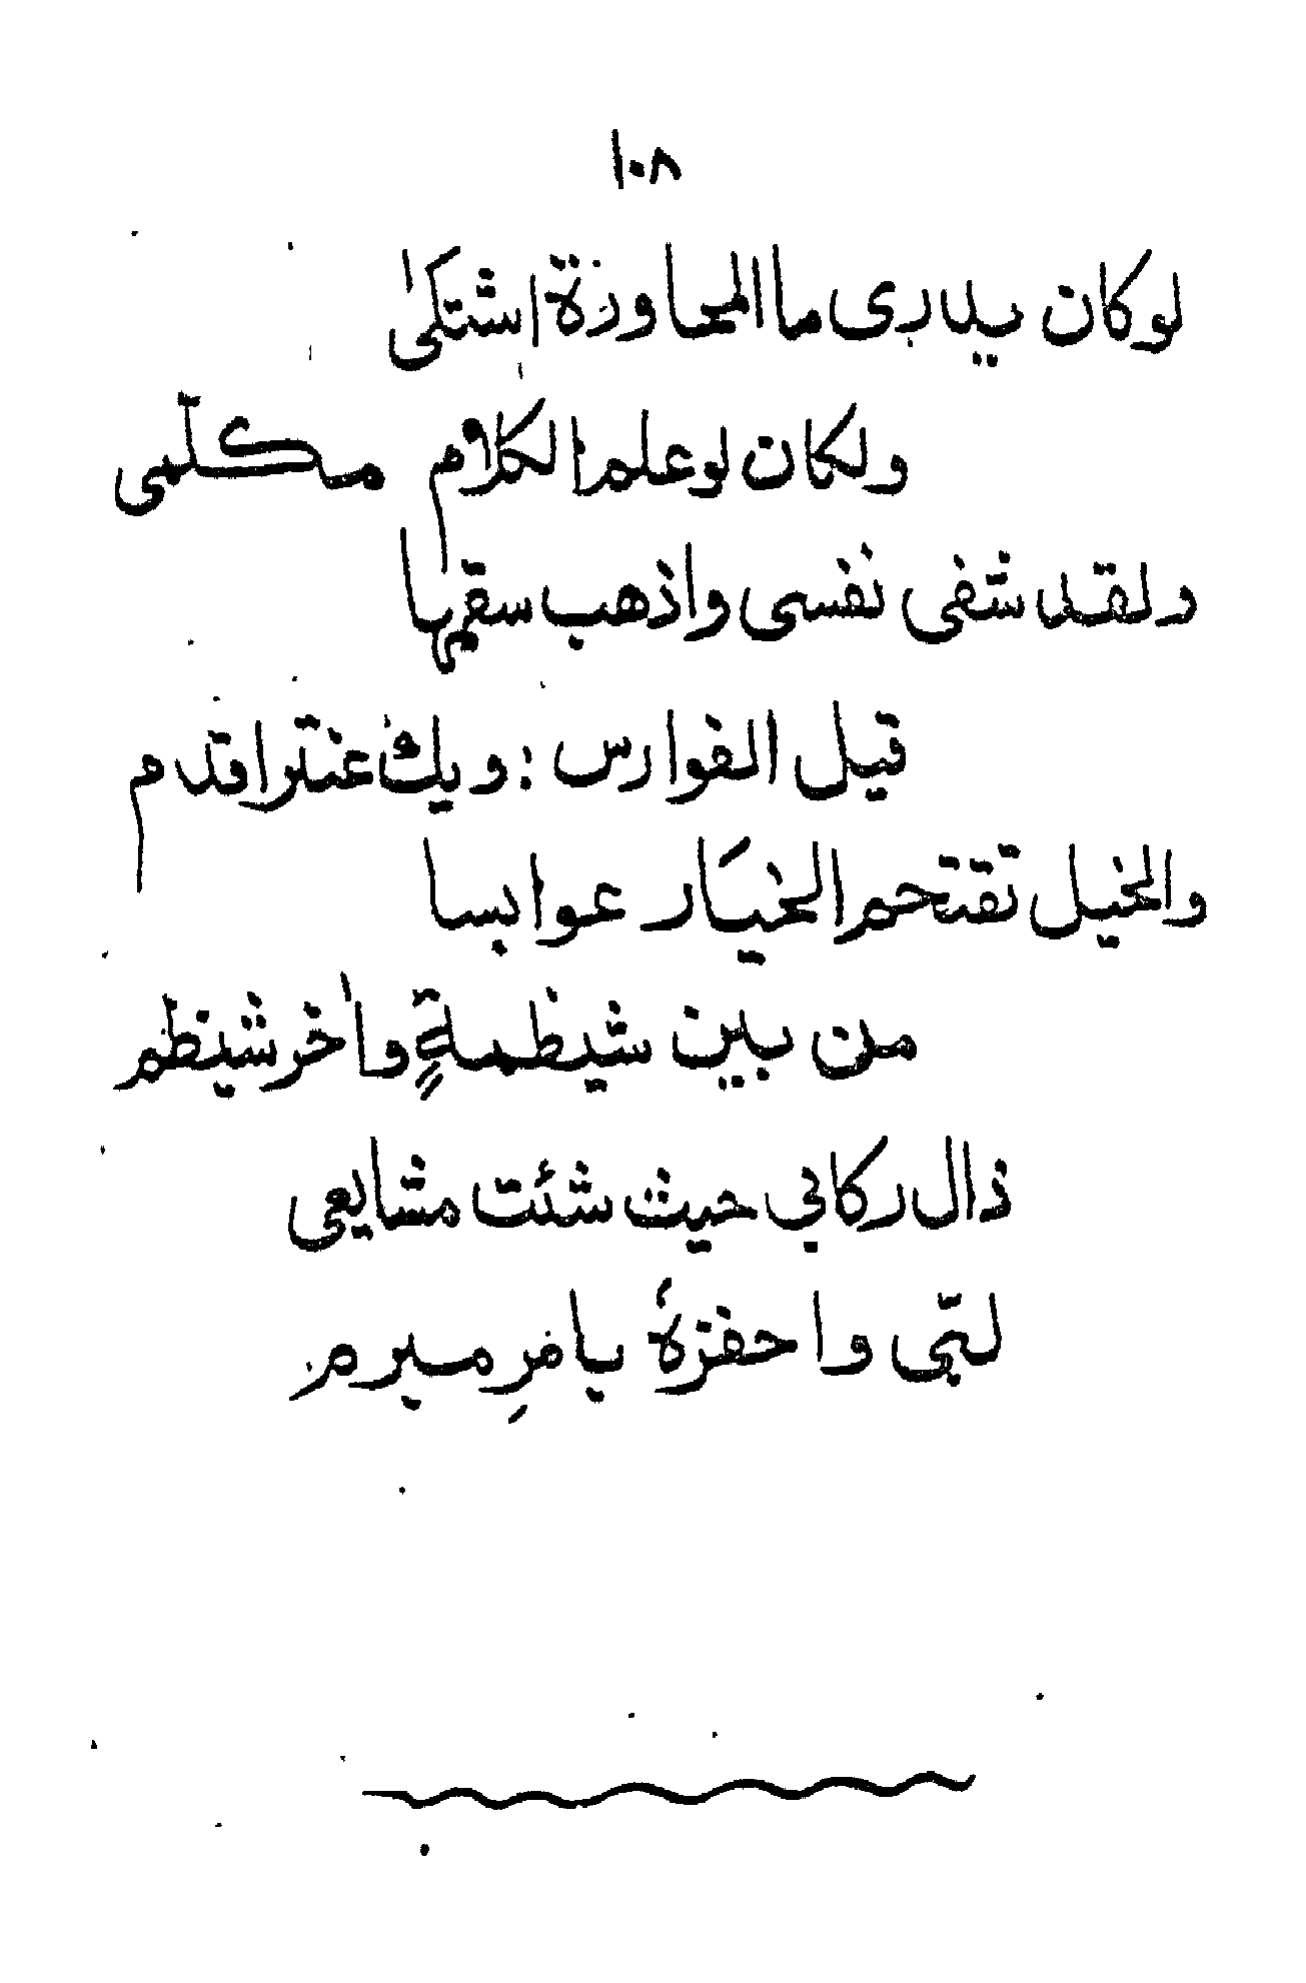 ١٠٨
لو كان يدرى ما المحاوزة اشتكى
ولكان لو علم الكلام مكلّمى
ولقد شفى نفسى واذهب سقمها
قيل الفوارس : ويك عنتر اقدم
والخيل تقتحم الخيَار عوابسا
من بين شيظمةٍ واٰخر شينظم
ذال ركابي حيث شئت مشايعى
لبّى واحفزهُ بامرِ مبرم